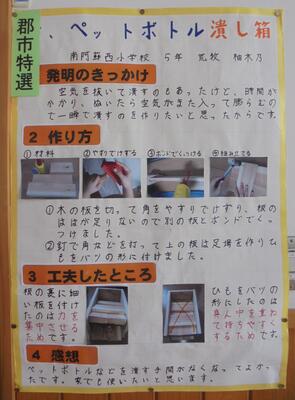 郡市特選
、ペットボトル潰し箱
南阿蘇西小学校 5年 荒牧 柚木乃
発明のきっかけ
空気を抜いて潰すのもあったけど、時間が
かかり、ぬいたら空気がまた入って膨らむの
で一瞬で潰すのを作りたいと思ったからです。
2 作り方
①材料
②やすりでけずる
③ボンドでくっつける
④組み立てる
①木の板を切って角をやすりでけずり、板の
はばが足りないので別の板とボンドでくっ
つけました。
②釘で角などを打って上の板は足場を作りひ
もをバツの形に付けました。
3 工夫したところ
板の裏に細
い板を付け
たのは力を
集中させる
ためです。
ひもをバツの
形にしたのは
真ん中を重ね
て持ちやすく
するためです。
4 感想
ペットボトルなどを潰す手間がなくなってよかっ
たです。家でも使いたいと思います。